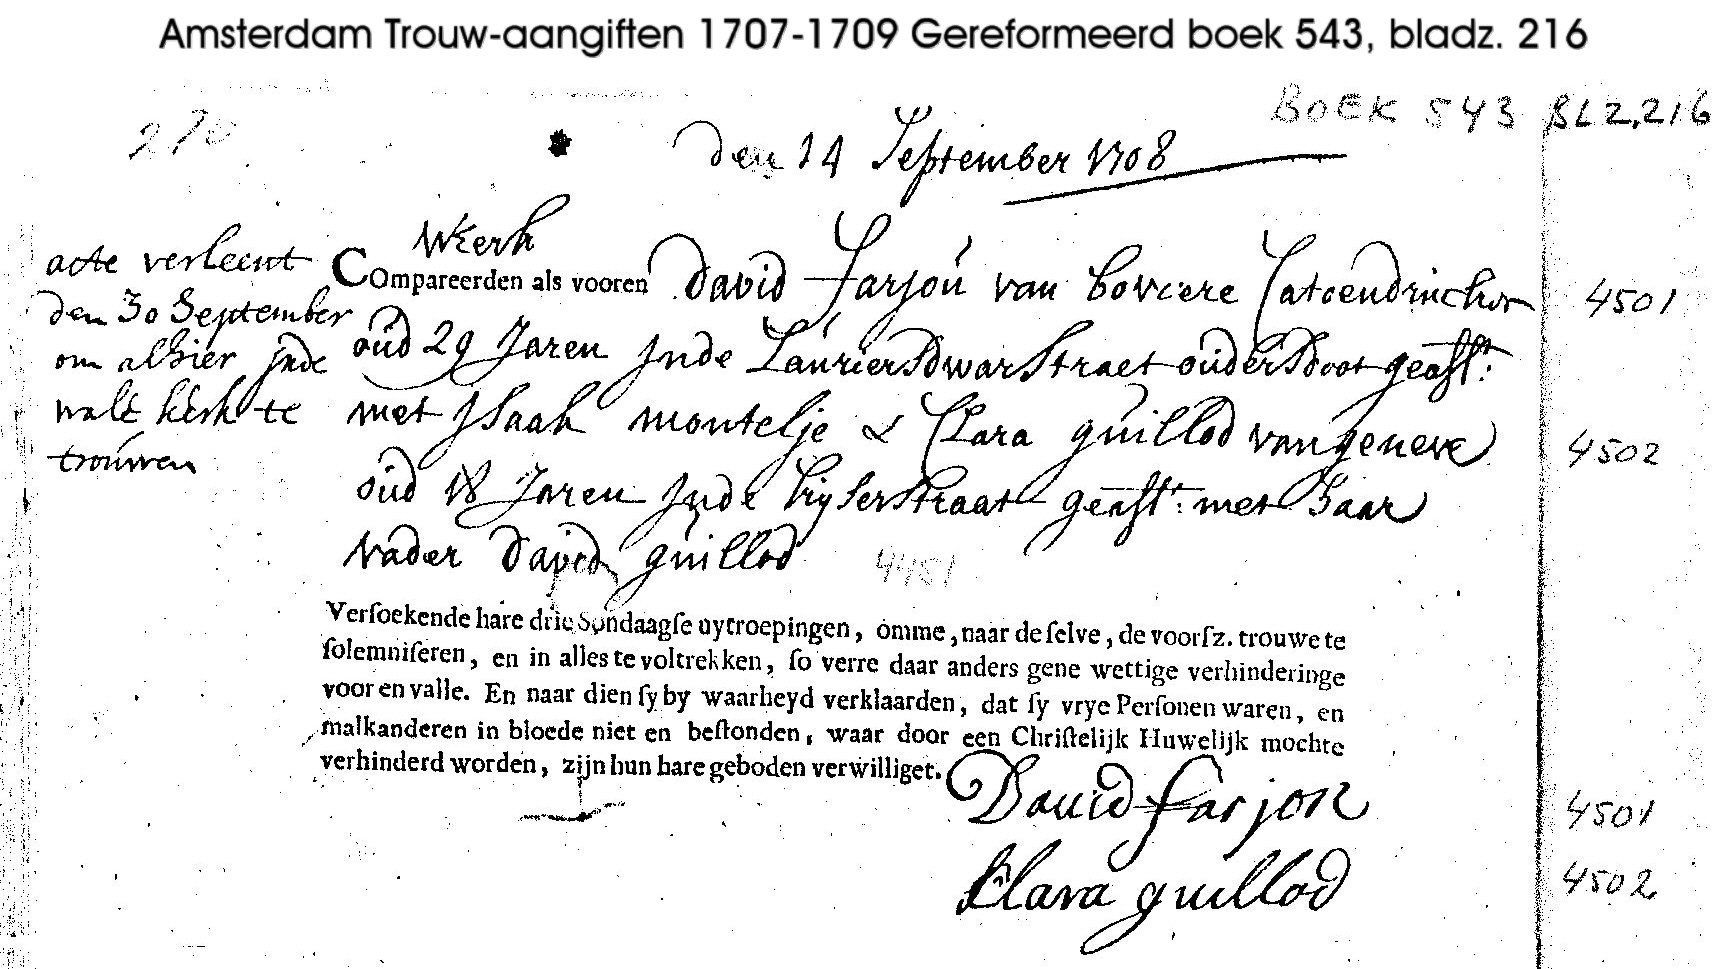 Amsterdam Trouw-aangiften 1707-1709 Gereformeerd boek 543, bladz. 216
BOEK 543 BLZ.216
270
den 14 September 1708
WKerk
acte verleent
den 30 September
om alhier Jnde
wale kerk te
trouwen
COmpareerden als vooren David farjou van Boviere Catoendrucker
oud 29 Jaren Jnde Lauriersdwarstraet ouders doot geasst:
met Jsaak montelje & Clara guillod van geneve
oud 18 Jaren Jnde keyserstraat geasst: met haar
vader David guillod
4501
4502
4451
Versoekende hare drie Sondaagse uytroepingen, omme, naar de selve, de voorsz. trouwe te
solemniseren, en in alles te voltrekken, so verre daar anders gene wettige verhinderinge
voor en valle. En naar dien sy by waarheyd verklaarden, dat sy vrye Personen waren, en
malkanderen in bloede niet en bestonden, waar door een Christelijk Huwelijk mochte
verhinderd worden, zijn hun hare geboden verwilliget.
David farjon
Clara guillod
4501
4502